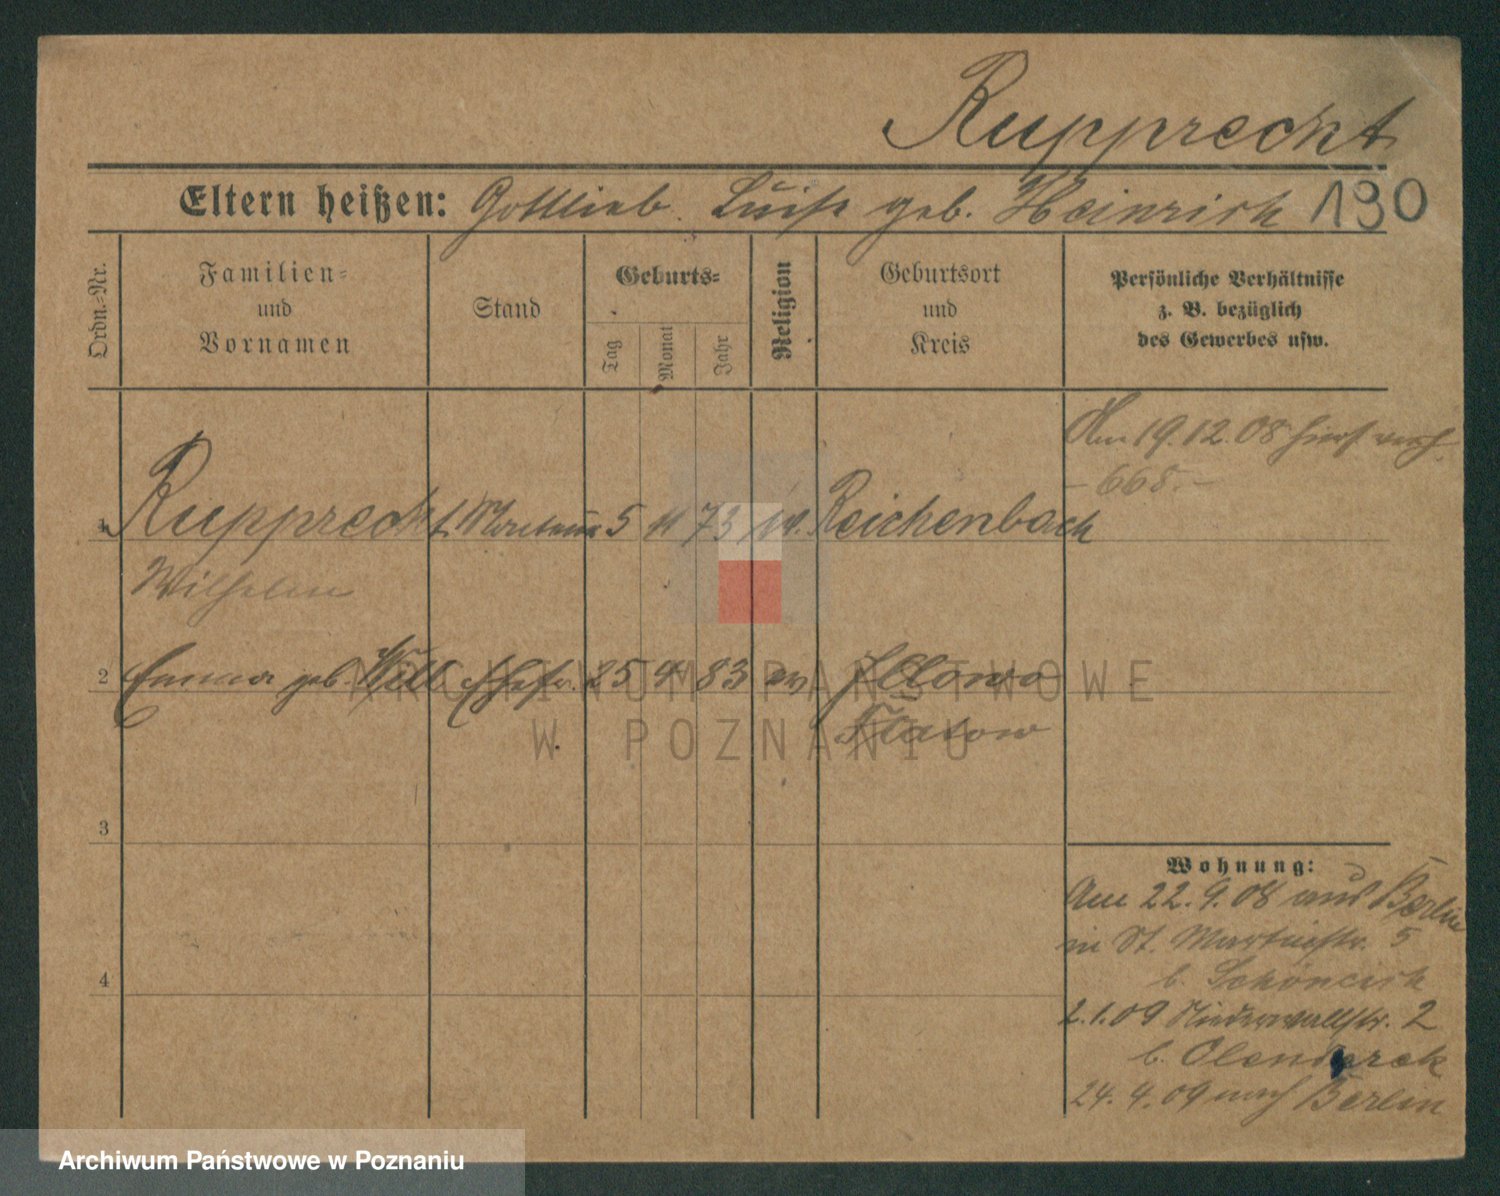 Rupprecht
Eltern heißen: Gottlieb. Luise geb. Heinrich 190
Ordn.-Nr.
Familien- und Vornamen
Stand
Geburts-
Tag
Monat
Jahr
Religion
Geburtsort und Kreis
Persönliche Verhältnisse
z. B. bezüglich
des Gewerbes usw.
Am 19.12.08 hier verh.
- 668.-
1 Rupprecht Monteur 5 11 73 ev. Reichenbach
Wilhelm
2 Emma geb. Will Ehefr. 25 4 83 ev Illowo
Flatow
3
4
Wohnung:
Am 22.9.08 aus Berlin
in St. Martinstr. 5
b.
2.1.09 Niederwallstr. 2
b.
24.4.09 nach Berlin
ARCHIWUM PAŃSTWOWE
W POZNANIU
Archiwum Państwowe w Poznaniu